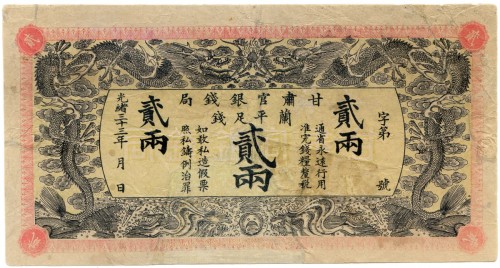 字第　號
貳兩
甘肅官銀錢局
蘭平足錢
通省永遠行用
准完錢糧釐稅
貳兩
如敢私造假票
照私鑄例治罪
貳兩
光緒三十三年　月　日